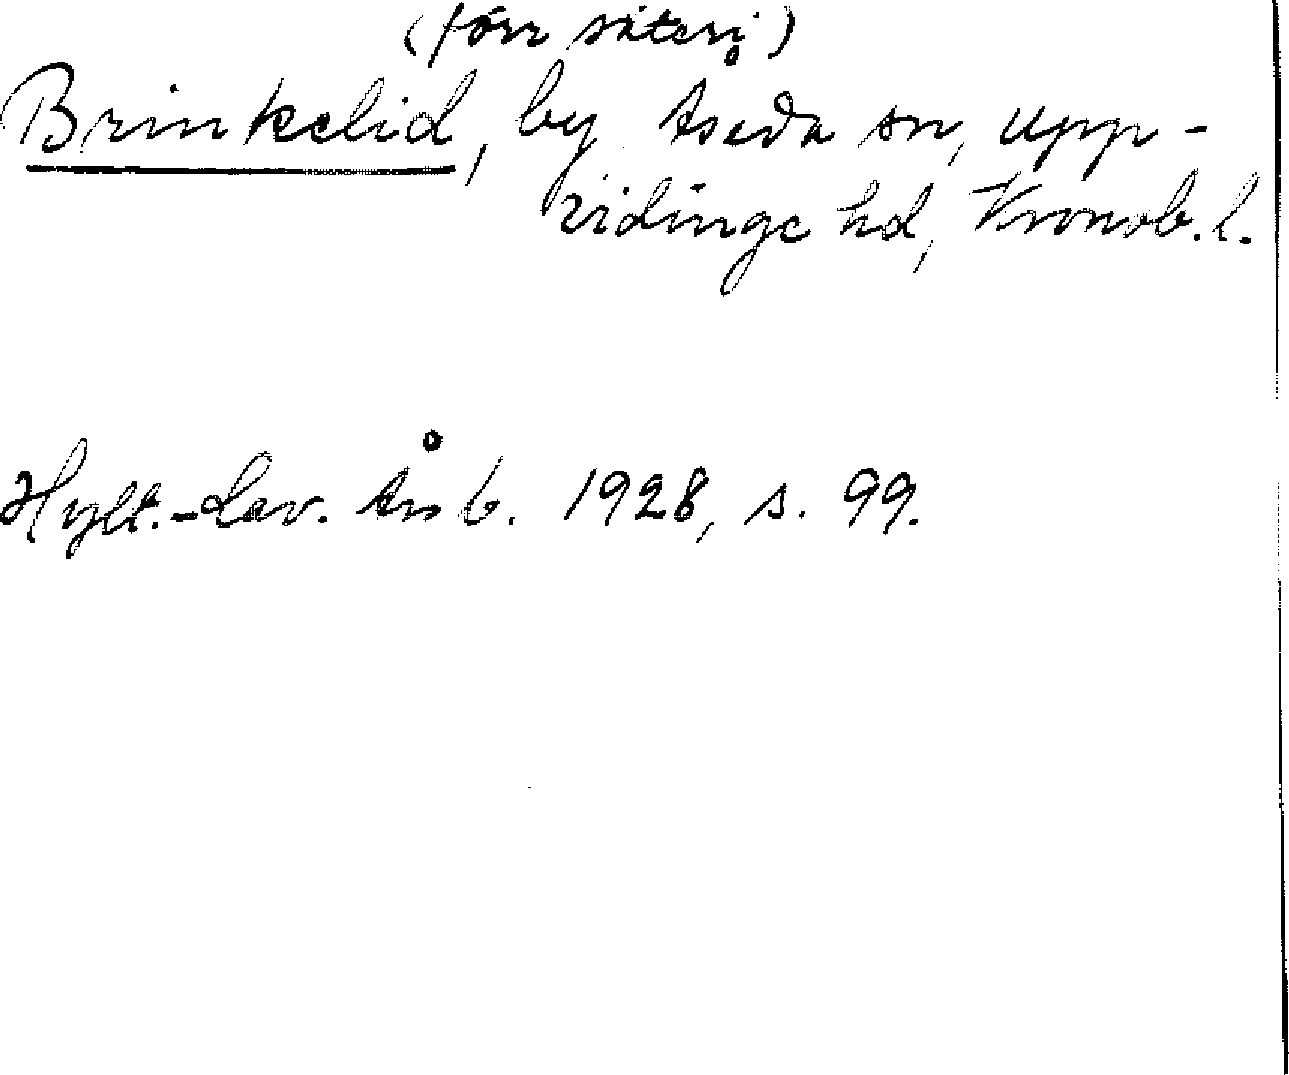 (förr säteri)
Brinkelid, by Åseda sn, Upp-
vidinge hd, Kronob. l.
Hylt.-Cav. Årsb. 1928, s. 99.